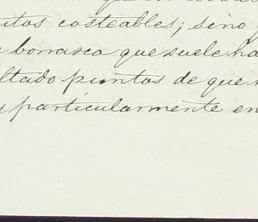 utos costeables; sino
borrasca que suele ha
ltado puntos de que
y particularmente en